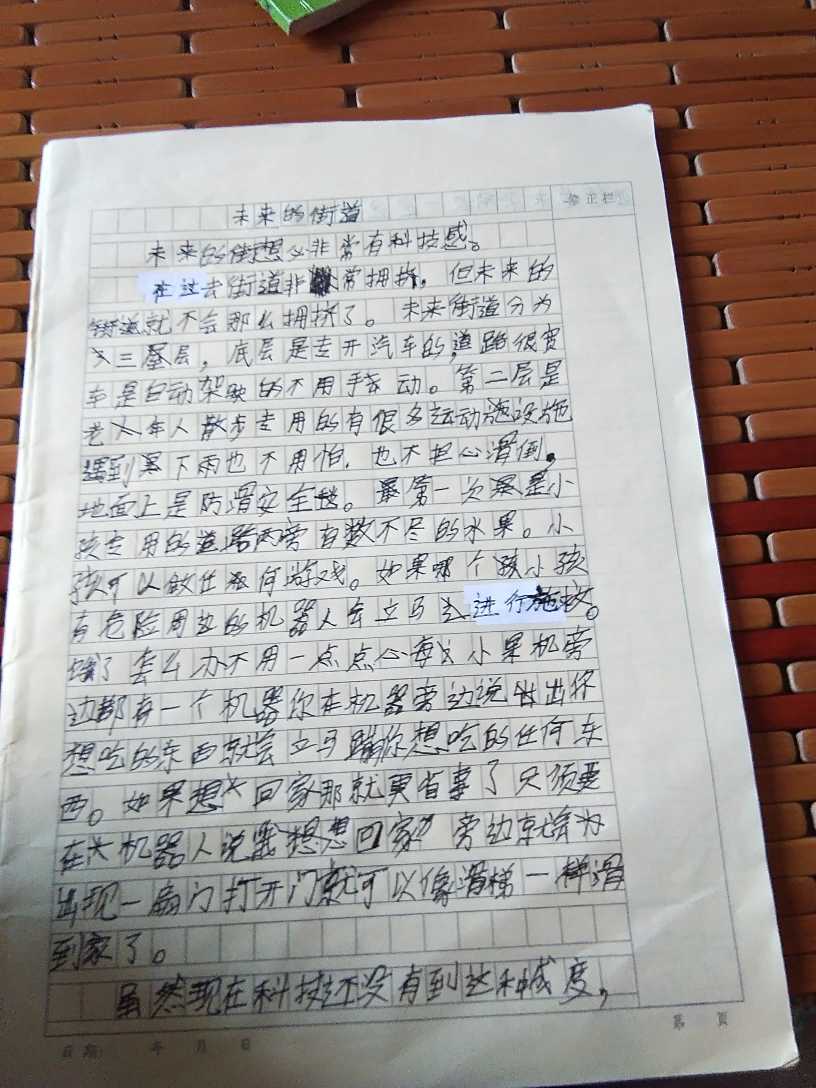 未来的街道
修正栏
未来的街想必非常有科技感。
在过去街道非常拥挤，但未来的
街道就不会那么拥挤了。未来街道分为
三层，底层是专开汽车的，道路很宽
车是自动驾驶的不用手动。第二层是
老年人散步专用的有很多运动设施
遇到下雨也不用怕，也不担心滑倒。
地面上是防滑安全。第一次是小
孩专用的道路两旁有数不尽的水果。小
孩可以做任何游戏。如果哪个小孩
有危险周边的机器人会立马进行施救。
饿了怎么办不用一点点心每小果机旁
边都有一个机器你在机器旁边说出你
想吃的东西就会立马蹦你想吃的任何东
西。如果想回家那就更省事了只须要
在机器人说我想回家”旁边就会为
出现一扇门打开门就可以像滑梯一样滑
到家了。
虽然现在科技还没有到这种戚度，
日期： 年 月 日
第 页